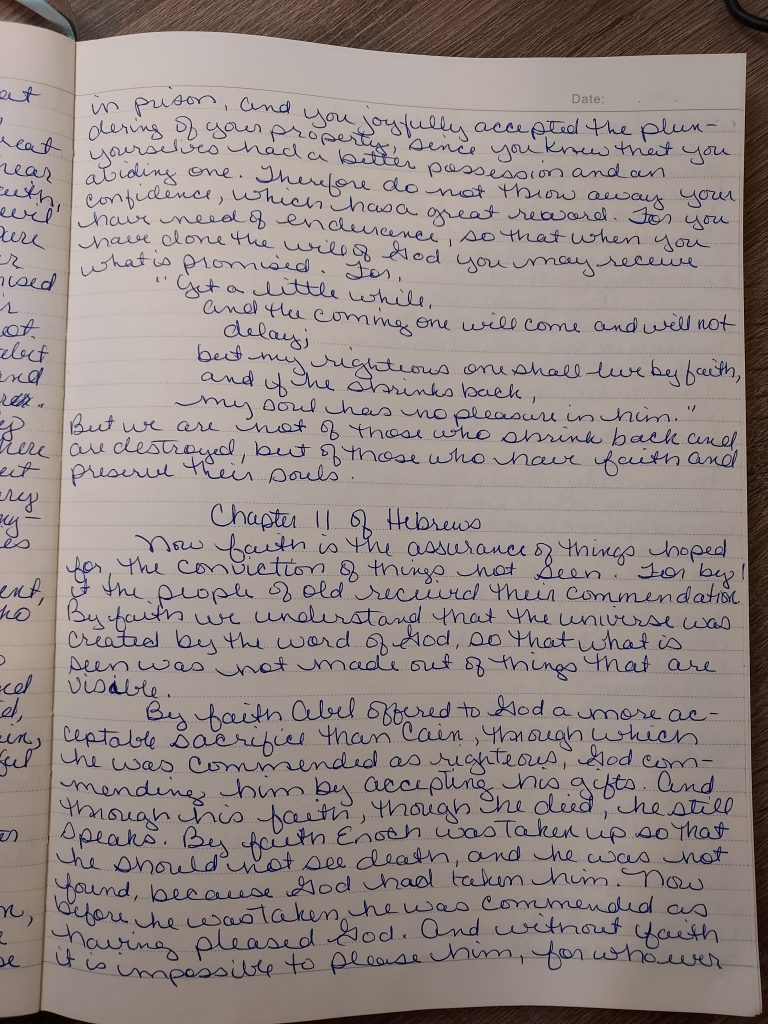 Date:
in prison, and you joyfully accepted the plun-
dering of your property, since you knew that you
yourselves had a better possession and an
abiding one. Therefore do not throw away your
confidence, which has a great reward. For you
have need of endurance, so that when you
have done the will of God you may receive
what is promised. For,
"Yet a little while,
and the coming one will come and will not
delay;
but my righteous one shall live by faith,
and if he shrinks back,
my soul has no pleasure in him."
But we are not of those who shrink back and
are destroyed, but of those who have faith and
preserve their souls.
Chapter 11 of Hebrews
Now faith is the assurance of things hoped
for, the conviction of things not seen. For by
it the people of old received their commendation.
By faith we understand that the universe was
created by the word of God, so that what is
seen was not made out of things that are
visible.
By faith Abel offered to God a more ac-
ceptable sacrifice than Cain, through which
he was commended as righteous, God com-
mending him by accepting his gifts. And
through his faith, though he died, he still
speaks. By faith Enoch was taken up so that
he should not see death, and he was not
found, because God had taken him. Now
before he was taken he was commended as
having pleased God. And without faith
it is impossible to please him, for whoever